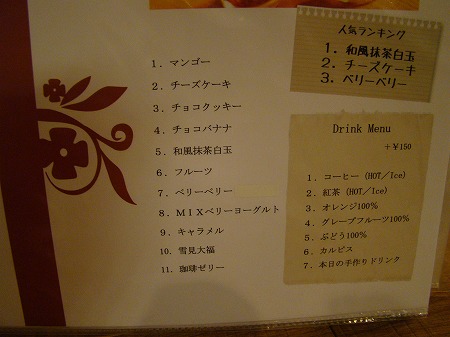 1. マンゴー
2. チーズケーキ
3. チョコクッキー
4. チョコバナナ
5. 和風抹茶白玉
6. フルーツ
7. ベリーベリー
8. MIXベリーヨーグルト
9. キャラメル
10. 雪見大福
11. 珈琲ゼリー
人気ランキング
1. 和風抹茶白玉
2. チーズケーキ
3. ベリーベリー
Drink Menu
+¥150
1. コーヒー (HOT/Ice)
2. 紅茶 (HOT/Ice)
3. オレンジ100%
4. グレープフルーツ100%
5. ぶどう100%
6. カルピス
7. 本日の手作りドリンク